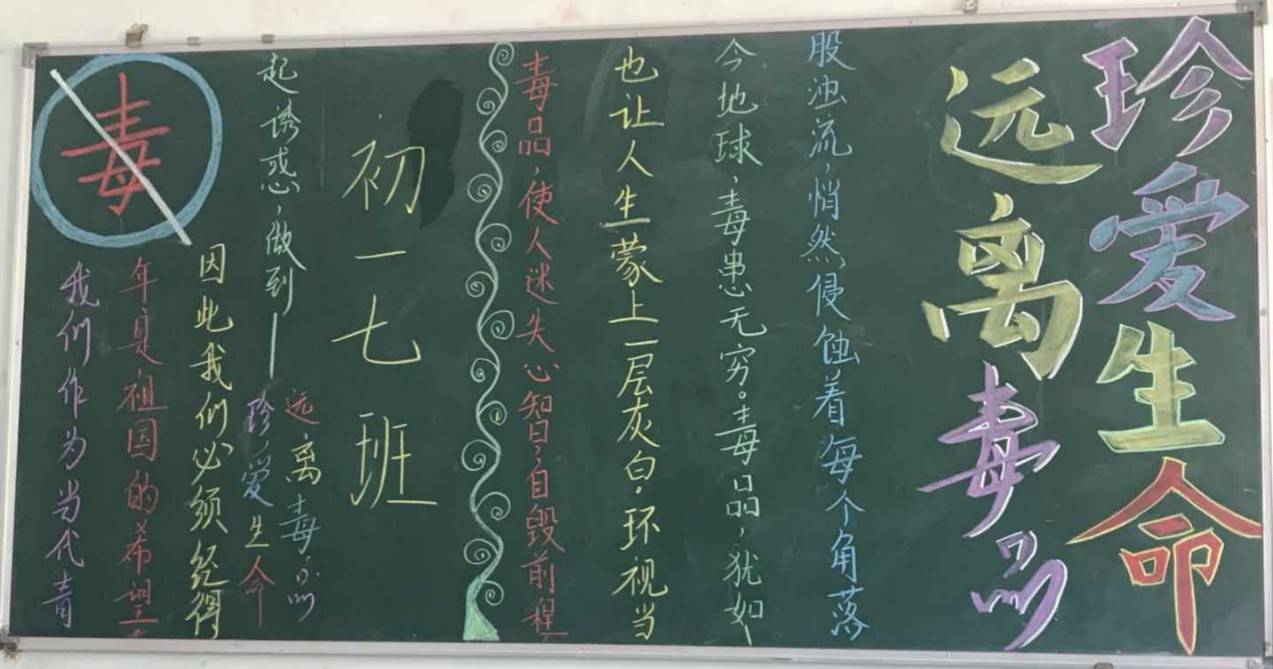 珍爱生命
远离毒品
毒品，使人迷失心智，自毁前程
也让人生蒙上一层灰白.环视当
今地球，毒患无穷。毒品，犹如
股浊流，悄然侵蚀着每个角落
毒
我们作为当代青
年是祖国的希望.
因此我们必须经得
起诱惑，做到——
珍爱生命
远离毒品
初一七班